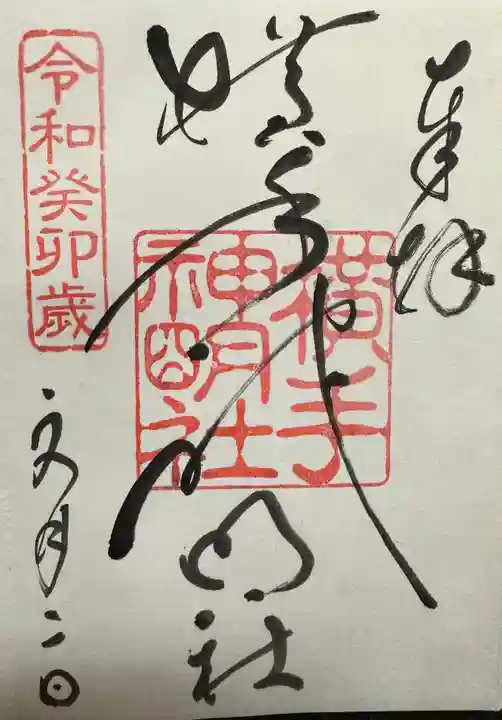 奉拝
横手
神明社
横手神明社
令和癸卯歳
文月二日